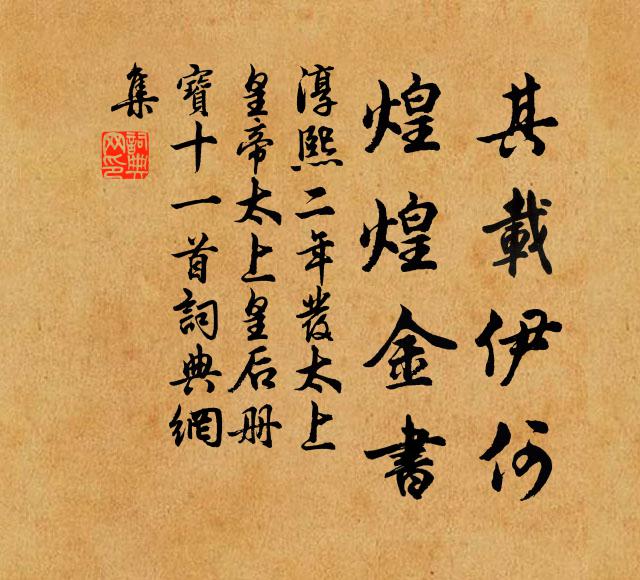 其載伊何
煌煌金書
淳熙二年發太上
皇帝太上皇后册
寶十一首詞典網
集
詞典
网印